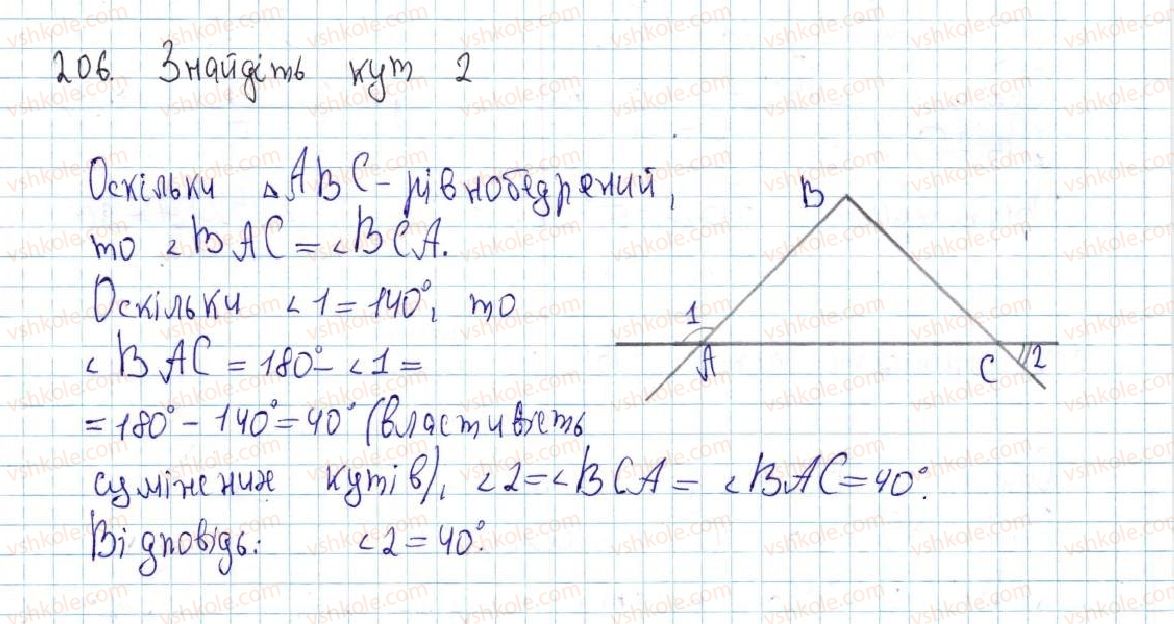 206. Знайдіть кут 2
Оскільки △ABC - рівнобедрений,
то ∠BAC = ∠BCA.
Оскільки ∠1 = 140°, то
∠BAC = 180° - ∠1 =
= 180° - 140° = 40° (властивість
суміжних кутів), ∠2 = ∠BCA = ∠BAC = 40°.
Відповідь: ∠2 = 40°.
B
1
A
C
2
vshkole.com